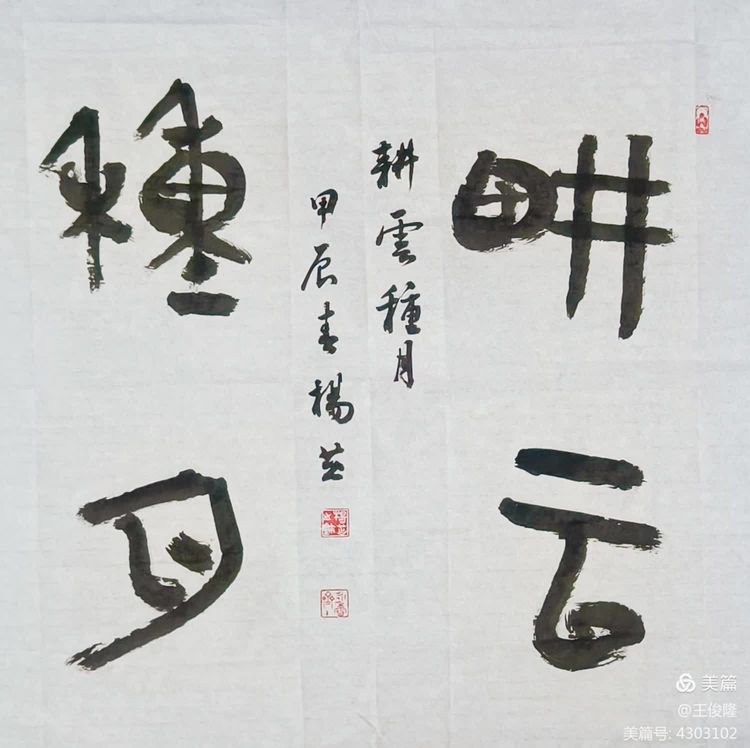 畊云
耕雲種月
甲辰春楊
種月
美篇
@王俊隆
美篇号: 4303102